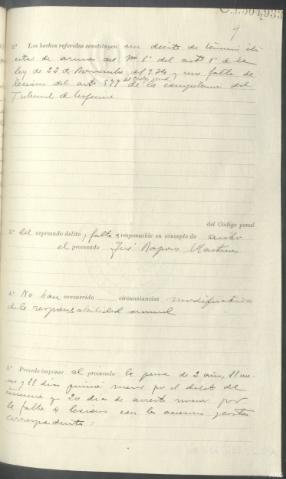 C.1.504,933
9
2ª Los hechos referidos constituyen un delito de tenencia ilí
cita de armas del nº 1º del artº 1º de la
ley de 22 de Noviembre del 934 y una falta de
lesiones del artº 577 del Código penal de la competencia del
Tribunal de Urgencia
del Código penal
3ª Del expresado delito y falta es responsable en concepto de autor
el procesado José
4ª No han concurrido circunstancias modificativas
de la responsabilidad criminal
5ª Procede imponer al procesado la pena de 2 años, 11 me
ses y 11 días prisión menor por el delito de
tenencia y 20 días de arresto menor por
la falta de lesiones con las accesorias y costas
correspondientes.